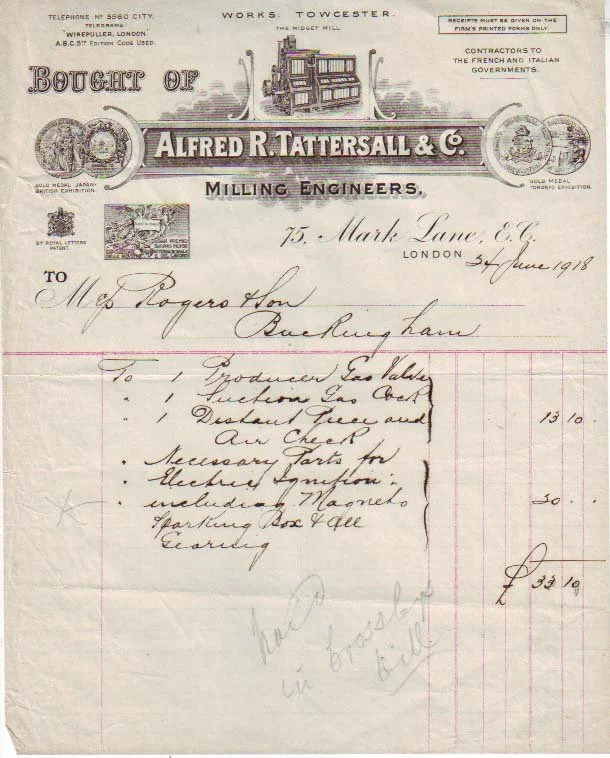 TELEPHONE Nº 5560 CITY.
TELEGRAMS
"WIREPULLER, LONDON."
A.B.C. 5TH EDITION CODE USED.
WORKS: TOWCESTER.
THE MIDGET MILL
RECEIPTS MUST BE GIVEN ON THE
FIRM'S PRINTED FORMS ONLY.
CONTRACTORS TO
THE FRENCH AND ITALIAN
GOVERNMENTS.
BOUGHT OF
ALFRED R. TATTERSALL & Co.
MILLING ENGINEERS,
GOLD MEDAL JAPAN-
BRITISH EXHIBITION.
GOLD MEDAL
TORONTO EXHIBITION.
BY ROYAL LETTERS
PATENT.
GRAN PREMIO
75, Mark Lane, E.C.
LONDON 24 June 1918
TO
Mess Rogers & Son
Buckingham
To 1 Producer Gas Valve
" 1 Suction Gas Cock
" 1 Distant Piece and 13 10 .
Air Check
" Necessary Parts for
" Electric Ignition :
" including Magneto 20 . .
Sparking Box & All
Gearing
£ 33 10
in Crossleys
bill